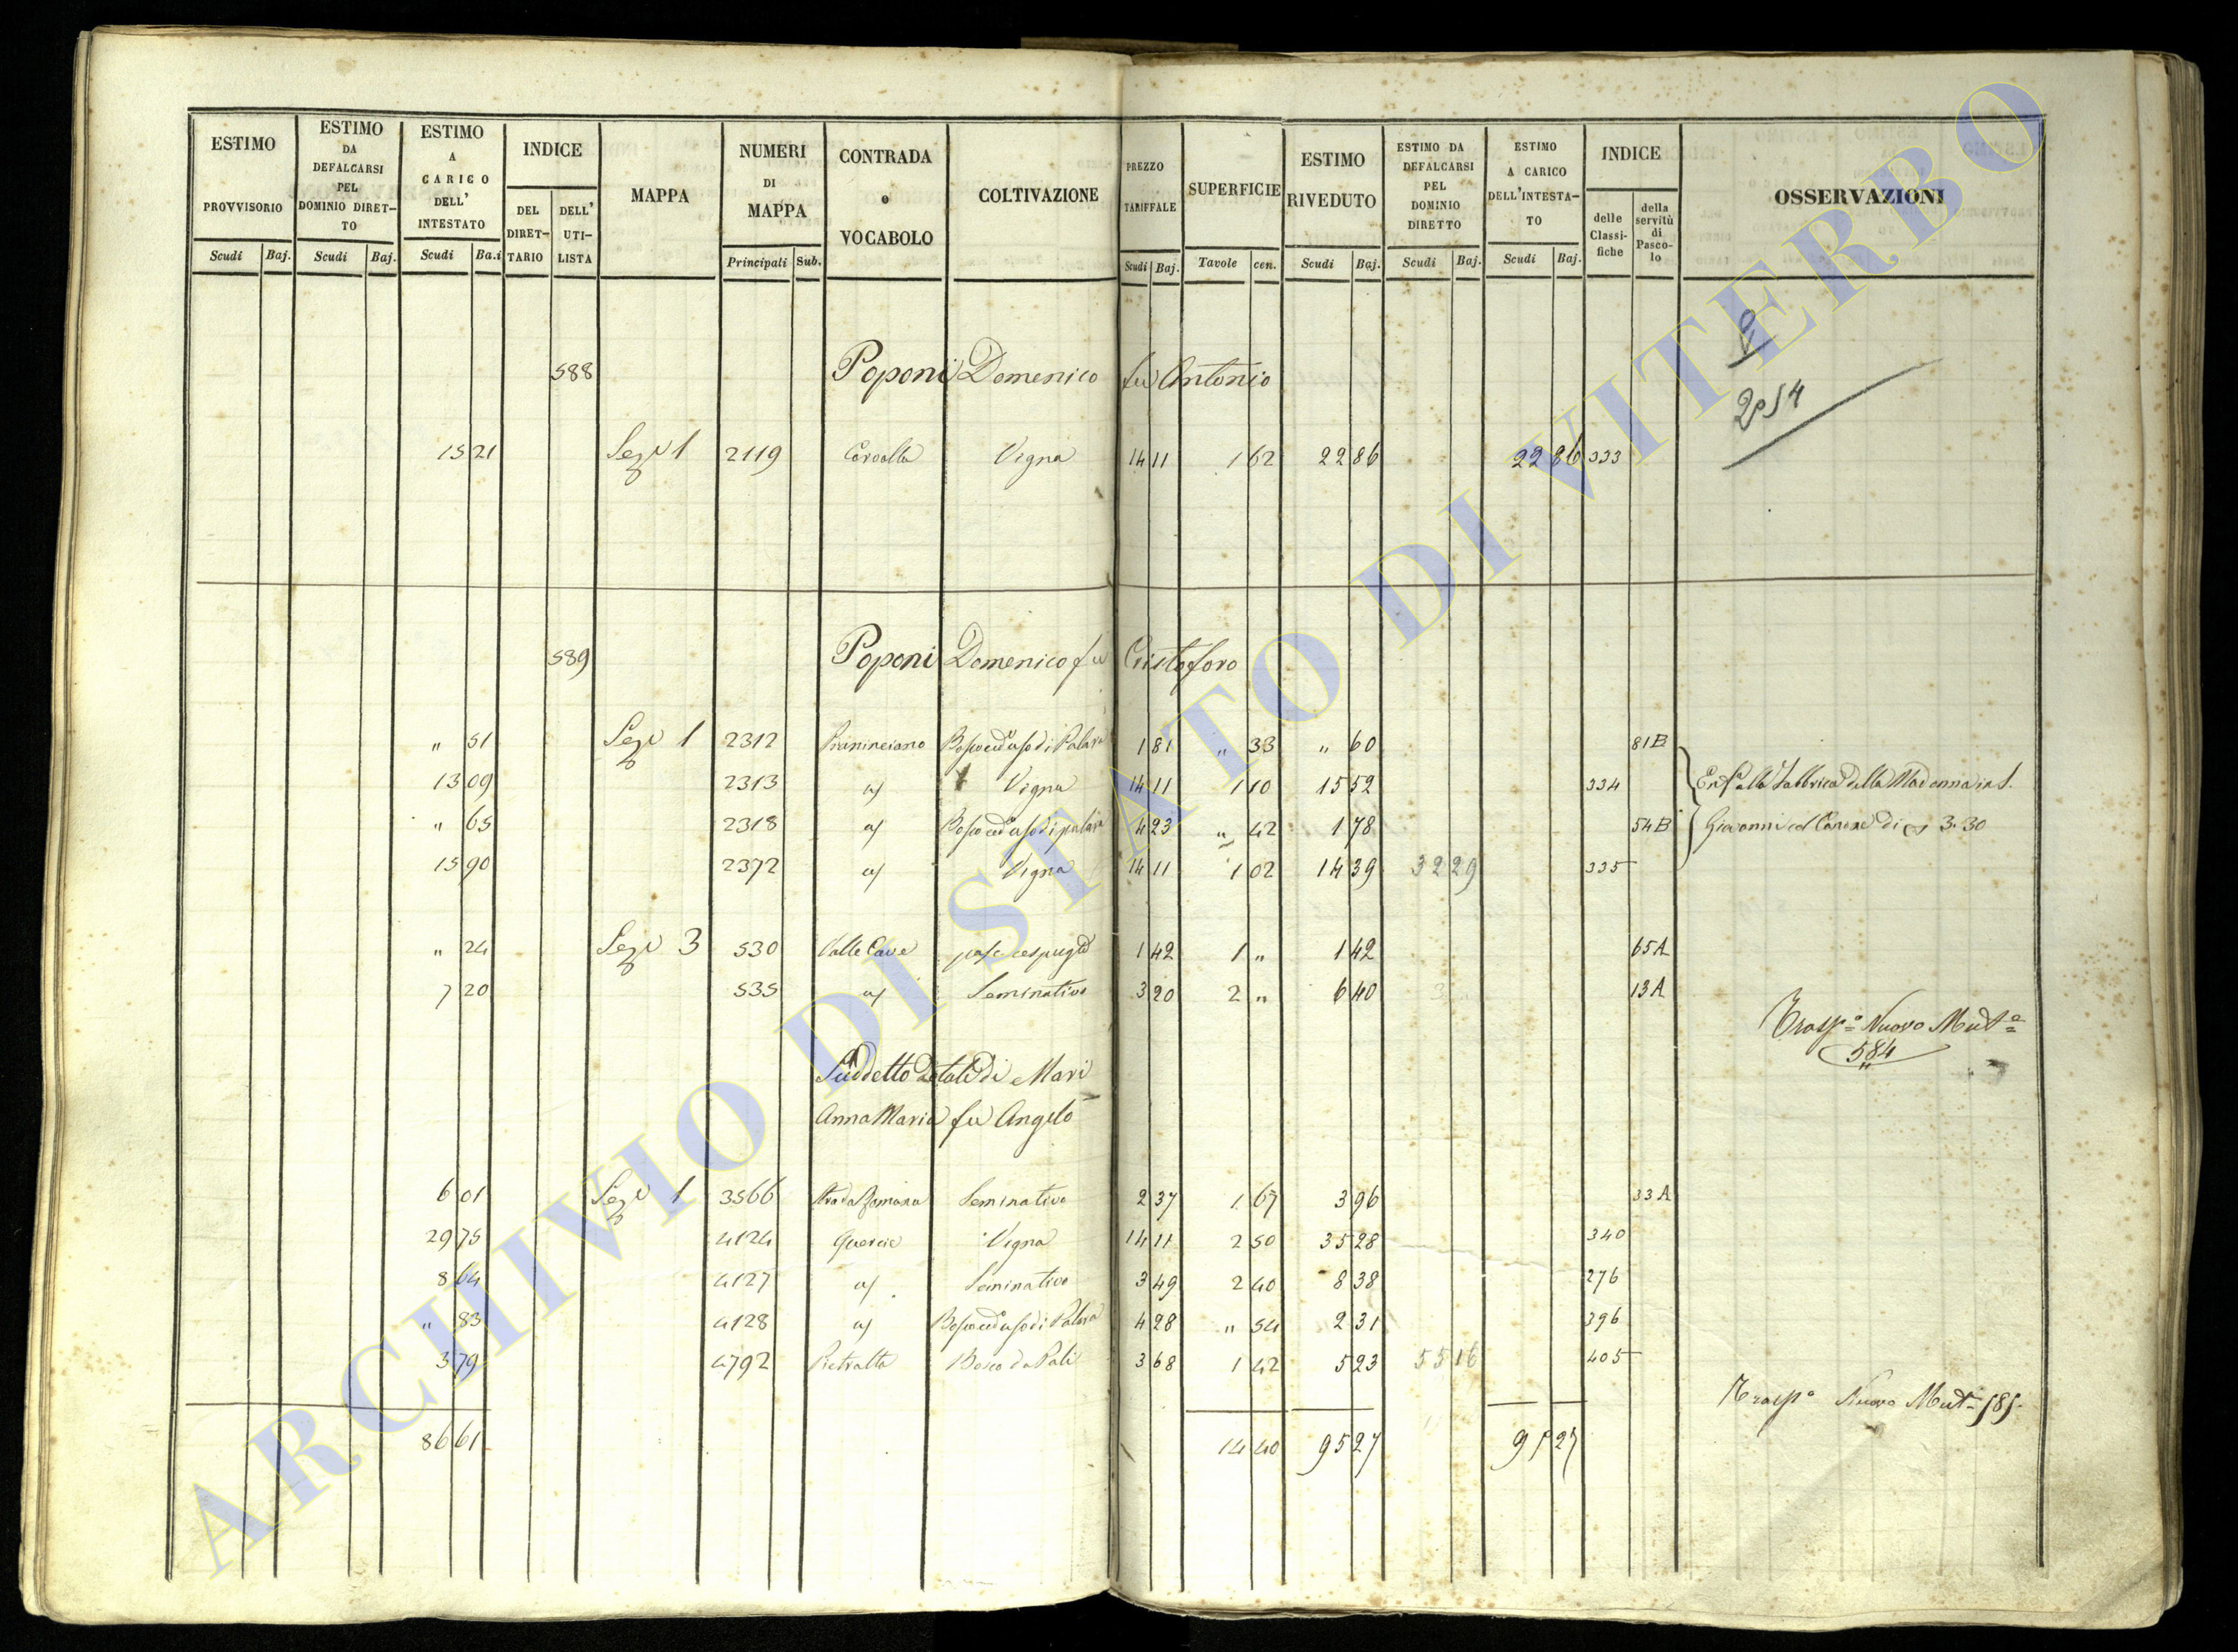 ESTIMO PROVVISORIO Scudi Baj.
ESTIMO DA DEFALCARSI PEL DOMINIO DIRET-TO Scudi Baj.
ESTIMO A CARICO DELL' INTESTATO Scudi Ba.i
INDICE DEL DIRET-TARIO DELL' UTI-LISTA
MAPPA
NUMERI DI MAPPA Principali Sub.
CONTRADA o VOCABOLO
COLTIVAZIONE
PREZZO TARIFFALE Scudi Baj.
SUPERFICIE Tavole cen.
ESTIMO RIVEDUTO Scudi Baj.
ESTIMO DA DEFALCARSI PEL DOMINIO DIRETTO Scudi Baj.
ESTIMO A CARICO DELL'INTESTA-TO Scudi Baj.
INDICE delle Classi-fiche della servitù di Pasco-lo
OSSERVAZIONI
588 Poponi Domenico fu Antonio
2514
15 21 Sez. 1 2119 Vigna 14 11 1 62 22 86 22 86 333
589 Poponi Domenico fu Cristoforo
" 51 Sez. 1 2312 Bosco ceduo di Palara 1 81 " 33 " 60 81B
13 09 2313 a/ Vigna 14 11 1 10 15 52 334 Enf.a alla Fabbrica della Madonna in S.
" 65 2318 a/ Bosco ceduo di palara 4 23 " 42 1 78 54B Giovanni col Canone di 3.30
15 90 2372 a/ Vigna 14 11 1 02 14 39 32 29 335
" 24 Sez. 3 530 Valle Cave pasc. cespugl.o 1 42 1 " 1 42 65A
7 20 535 a/ Seminativo 3 20 2 " 6 40 13A
Trasp.o Nuovo Mut.e
584
Suddetto Dotali di Mari
Anna Maria fu Angelo
6 01 Sez. 1 3566 Strada Romana Seminativo 2 37 1 67 3 96 33A
29 75 4124 Quercie Vigna 14 11 2 50 35 28 340
8 64 4127 a/ Seminativo 3 49 2 40 8 38 276
" 83 4128 a/ Bosco ceduo di Palara 4 28 " 54 2 31 396
3 79 4792 Pietralta Bosco da Pali 3 68 1 42 5 23 55 16 405
Trasp.o Nuovo Mut.e 585.
86 61 14 40 95 27 95 27
ARCHIVIO DI STATO DI VITERBO